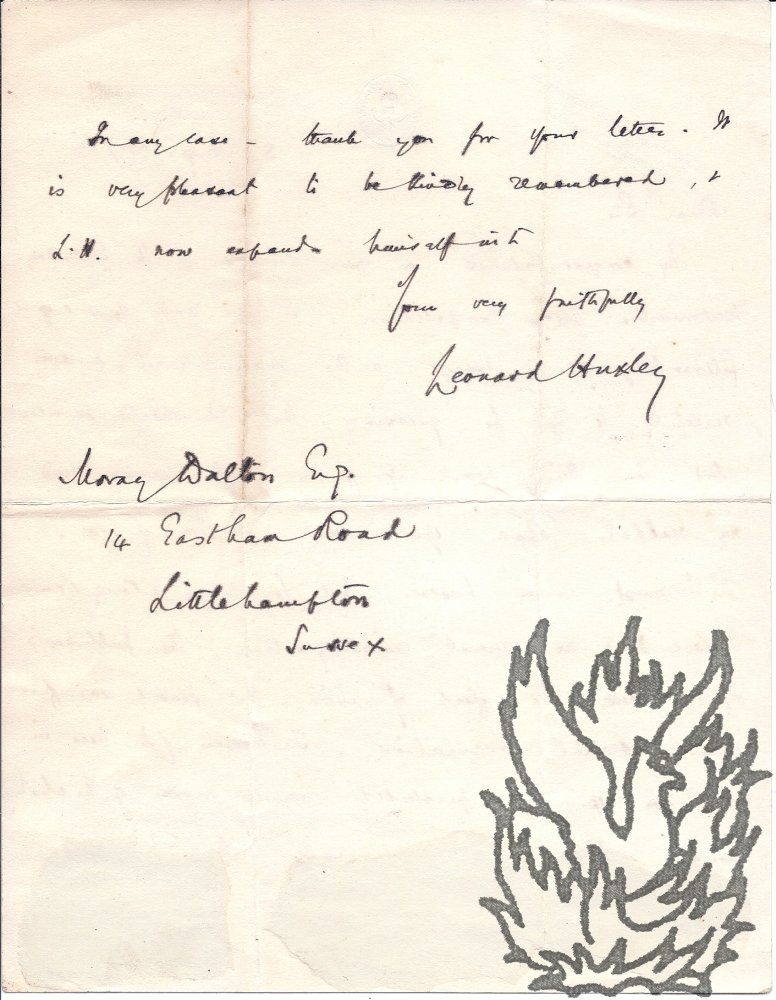 In any case – thank you for your letter. It
is very pleasant to be kindly remembered, &
L.H. now expands himself into
Yours very faithfully
Leonard Huxley
Moray Dalton Esq.
14 Eastham Road
Littlehampton
Sussex